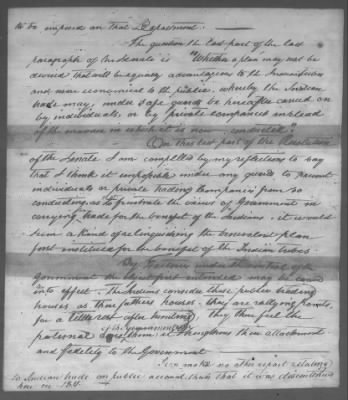 to be imposed on that Department.
The question the last part of the last
paragraph of the Senate is "Whether a plan may not be
devised that will be equally advantageous to the
and more economical to the public, whereby the Indian
trade may, under safe guards be hereafter carried on
by individuals, or by private companies instead
of the manner in which it is now conducted"
On this last part of the Resolution
of the Senate I am compelled by my reflections to say
that I think it impossible under any guards to prevent
individuals or private trading Companies from so
conducting as to frustrate the views of Government in
carrying trade for the benefit of the Indians. it would
seem a kind of relinquishing the benevolent plan
first instituted for the benefit of the Indian tribes.
By factories under the control of
Government the object first intended may be carried
into effect. The Indians consider these public trading
houses as their fathers houses. they are rallying points,
for a after hunting, they then feel the
of the Government
paternal them it strengthens their attachment
and fidelity to the Government
I can make no other report relating
to Indian trade on public account than that it was discontinued
here in